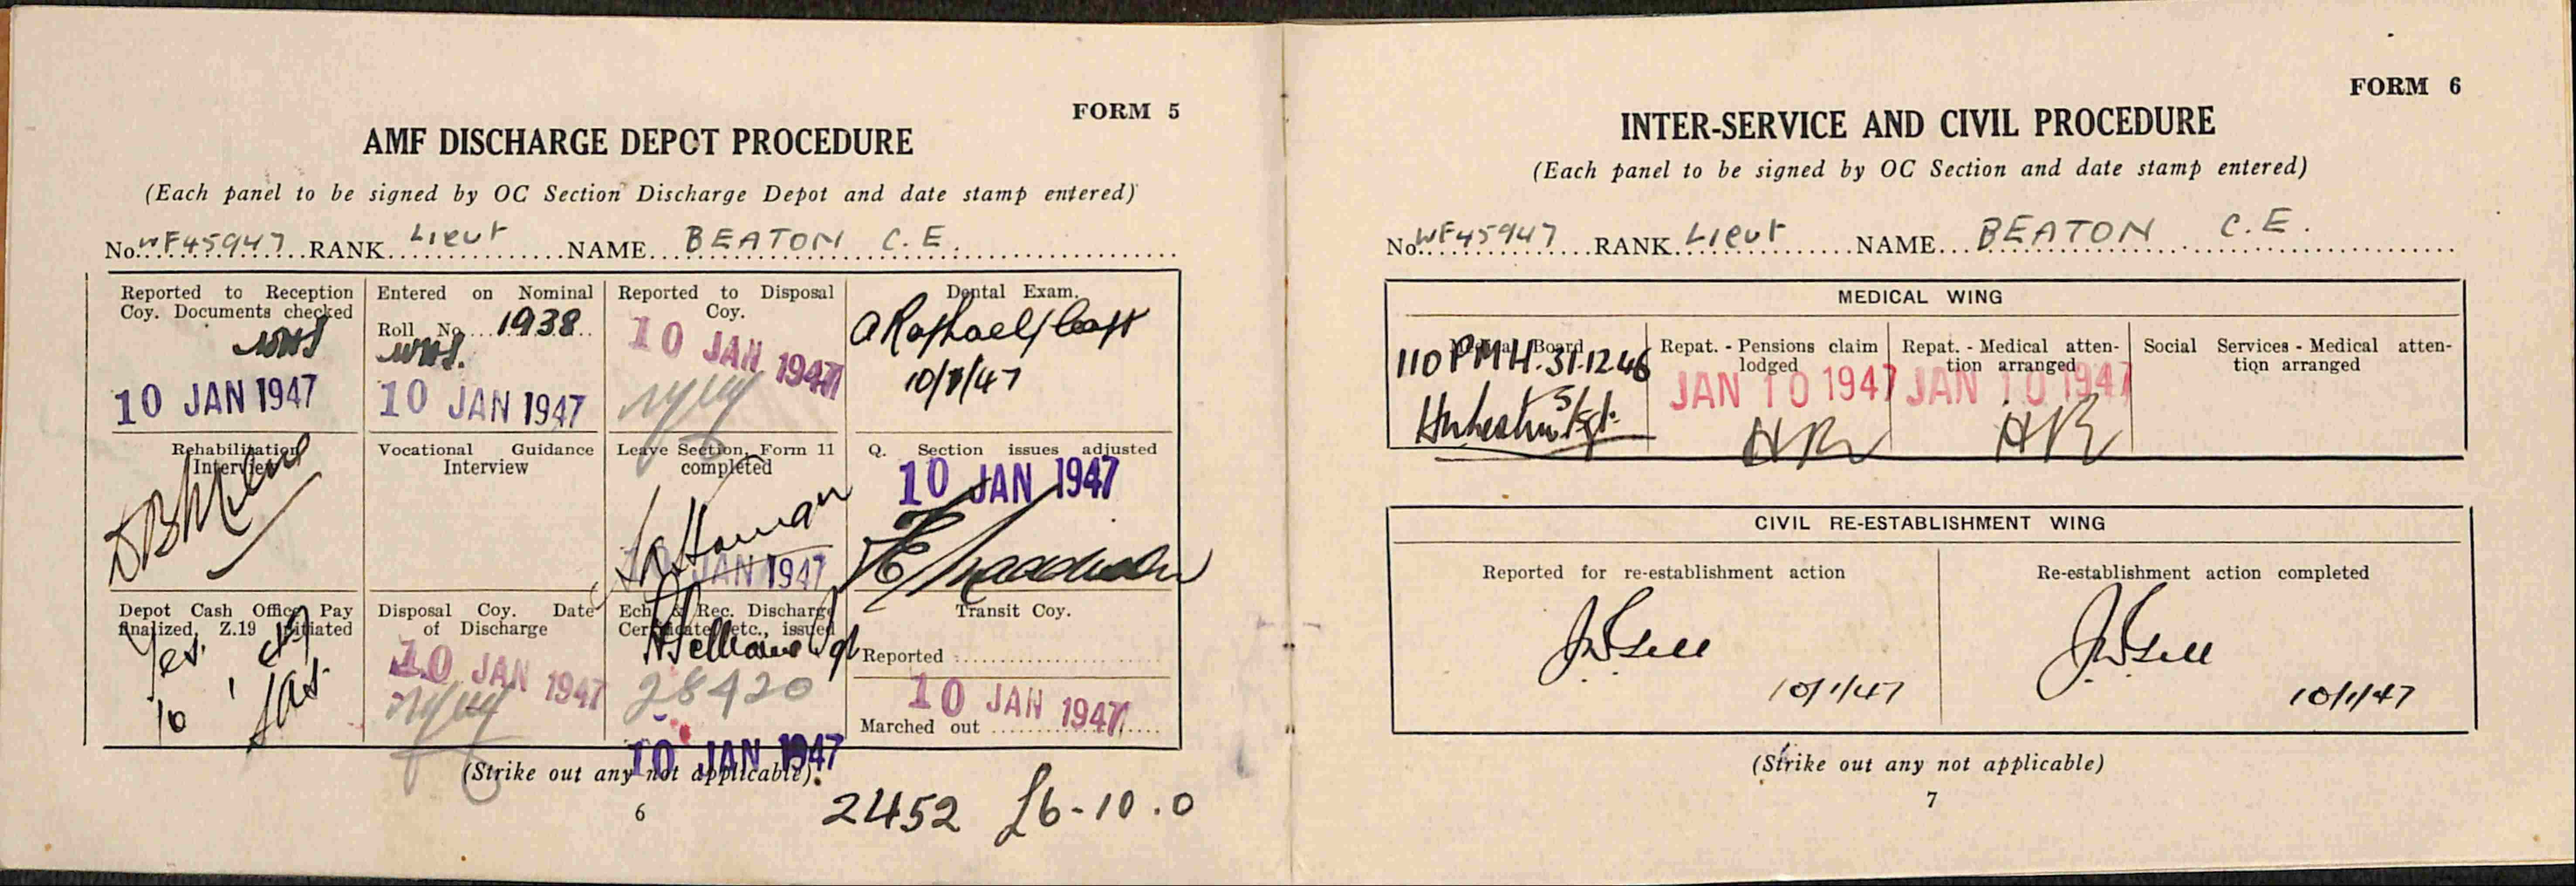 FORM 5
AMF DISCHARGE DEPOT PROCEDURE
(Each panel to be signed by OC Section Discharge Depot and date stamp entered)
No. WF45947 RANK Lieut NAME BEATON C.E.
Reported to Reception
Coy. Documents checked
10 JAN 1947
Entered on Nominal
Roll No. 1938
10 JAN 1947
Reported to Disposal
Coy.
10 JAN 1947
Dental Exam.
10/1/47
Rehabilitation
Interview
Vocational Guidance
Interview
Leave Section, Form 11
completed
10 JAN 1947
Q. Section issues adjusted
10 JAN 1947
Depot Cash Office Pay
finalized, Z.19 initiated
Yes.
10
Disposal Coy. Date
of Discharge
10 JAN 1947
Ech. & Rec. Discharge
Certificate, etc., issued
28420
10 JAN 1947
Transit Coy.
Reported
10 JAN 1947
Marched out
(Strike out any not applicable).
6
2452 £6-10.0
FORM 6
INTER-SERVICE AND CIVIL PROCEDURE
(Each panel to be signed by OC Section and date stamp entered)
No. WF45947 RANK Lieut NAME BEATON C.E.
MEDICAL WING
Medical Board
110 PMH. 31.12.46
S/Sgt.
Repat. - Pensions claim
lodged
JAN 10 1947
HR
Repat. - Medical atten-
tion arranged
JAN 10 1947
HR
Social Services - Medical atten-
tion arranged
CIVIL RE-ESTABLISHMENT WING
Reported for re-establishment action
10/1/47
Re-establishment action completed
10/1/47
(Strike out any not applicable)
7